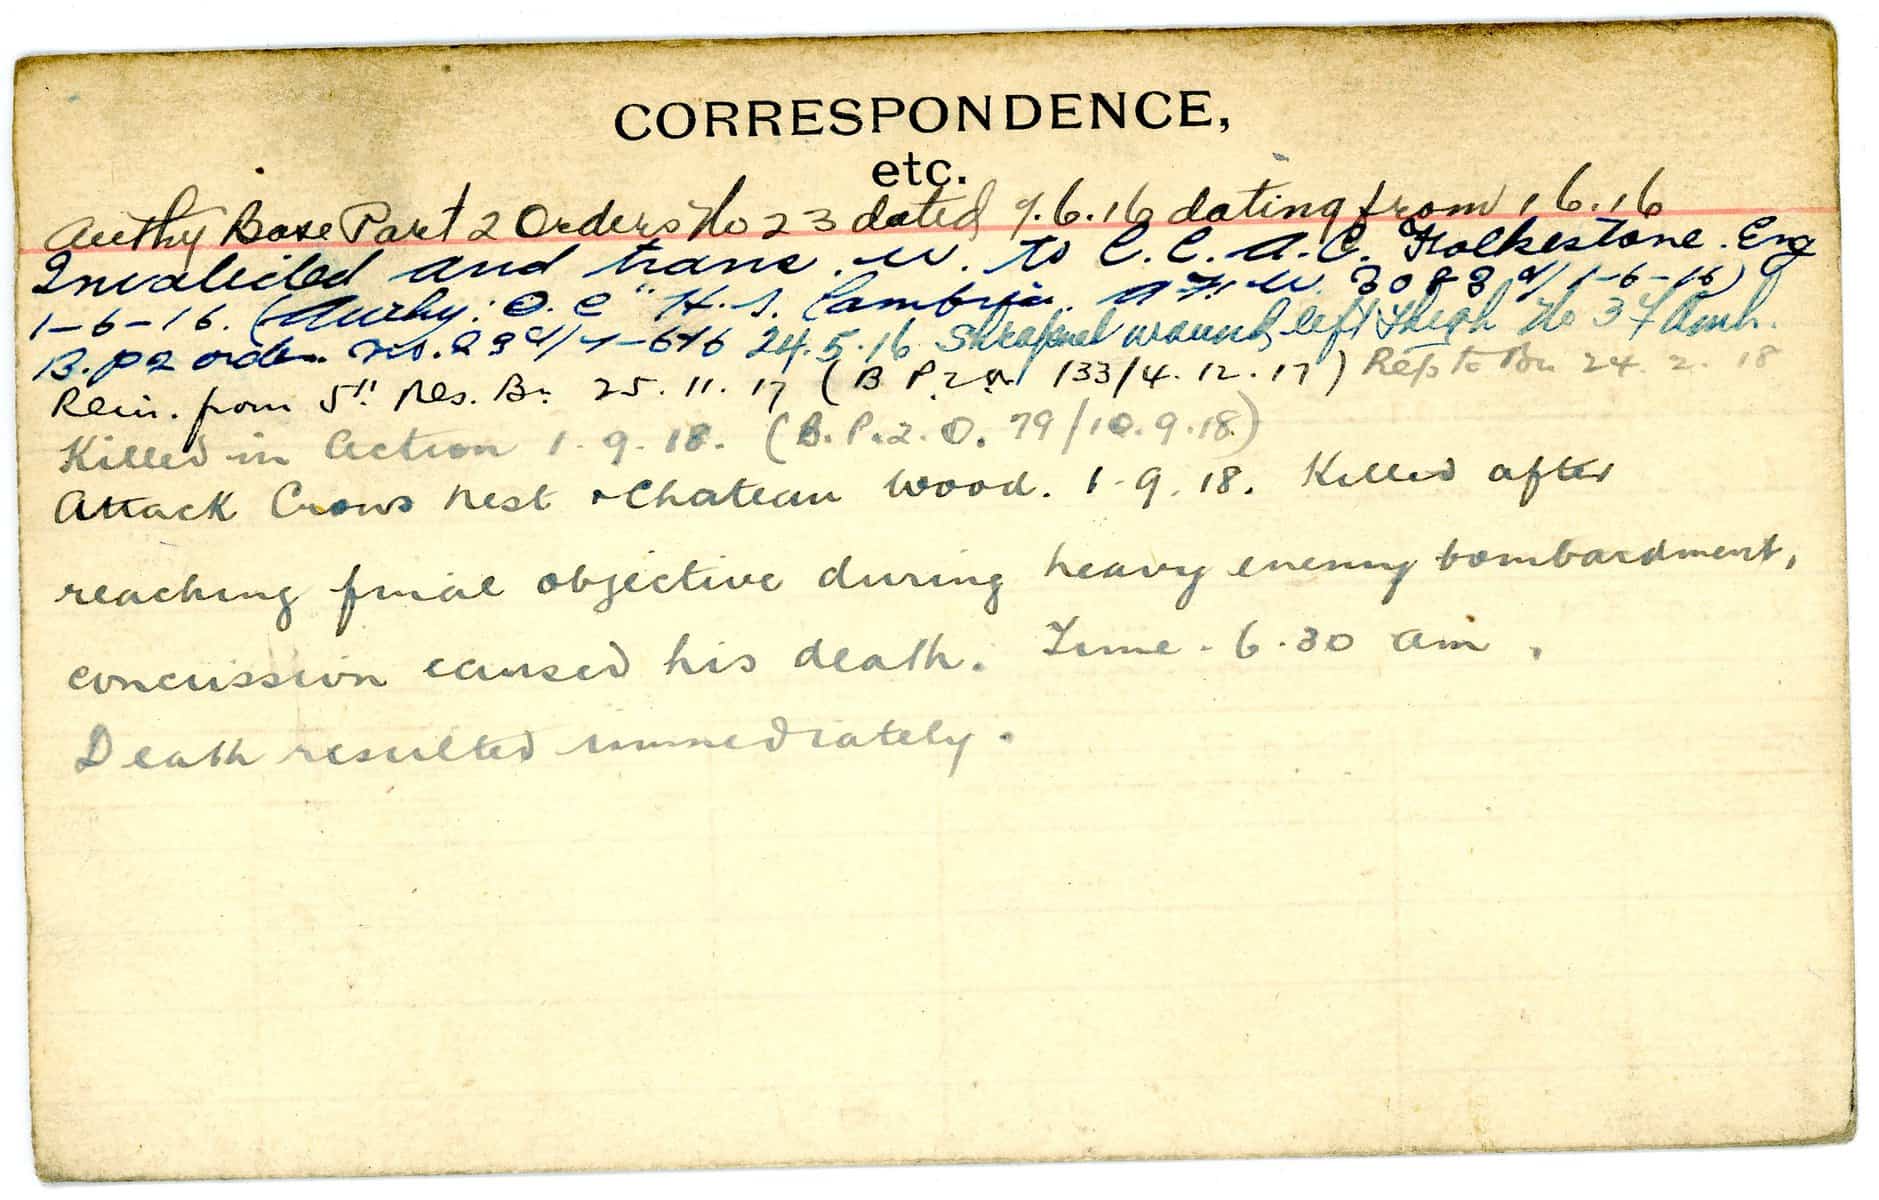 CORRESPONDENCE,
etc.
Authy Base Part 2 Orders No 23 dated 7.6.16 dating from 1.6.16
Invalided and trans. to C.C.A.C. Folkestone. Eng
1-6-16. (Authy: O.C. "H.S. Cambria. A.F.W. 3083 d/1-6-16)
B.P2 order No. 23 d/7-6-16 24.5.16 Shrapnel wound left thigh No 3 F Amb.
Rein. from 5" Res. Bn. 25.11.17 (B P 2 O 133/4.12.17) Rep to Bn 24.2.18
Killed in Action 1.9.18. (B.P.2.O. 79/10.9.18)
Attack Crows Nest & Chateau Wood. 1.9.18. Killed after
reaching final objective during heavy enemy bombardment,
concussion caused his death. Time. 6.30 am.
Death resulted immediately.